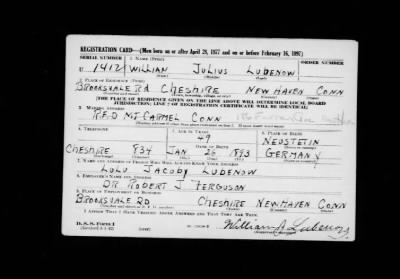 REGISTRATION CARD—(Men born on or after April 28, 1877 and on or before February 16, 1897)
SERIAL NUMBER 1. NAME (Print) ORDER NUMBER
U 1412 WILLIAN JULIUS LUDENOW
2. PLACE OF RESIDENCE (Print)
BROOKSVALE Rd CHESHIRE NEW HAVEN CONN
[THE PLACE OF RESIDENCE GIVEN ON THE LINE ABOVE WILL DETERMINE LOCAL BOARD
JURISDICTION; LINE 2 OF REGISTRATION CERTIFICATE WILL BE IDENTICAL]
3. MAILING ADDRESS
R.F.D MT CARMEL CONN
4. TELEPHONE 5. AGE IN YEARS 6. PLACE OF BIRTH
49 NEUSTEIN
DATE OF BIRTH
CHESHIRE 834 JAN 26 1893 GERMANY
7. NAME AND ADDRESS OF PERSON WHO WILL ALWAYS KNOW YOUR ADDRESS
LULU JACOBY LUDENOW
8. EMPLOYER'S NAME AND ADDRESS
DR ROBERT J FERGUSON
9. PLACE OF EMPLOYMENT OR BUSINESS
BROOKSVALE RD CHESHIRE NEW HAVEN CONN
I AFFIRM THAT I HAVE VERIFIED ABOVE ANSWERS AND THAT THEY ARE TRUE.
D. S. S. Form 1